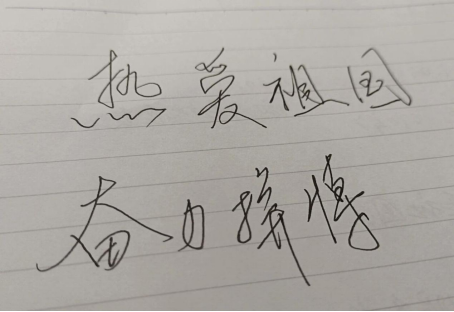 热爱祖国
奋力拼搏